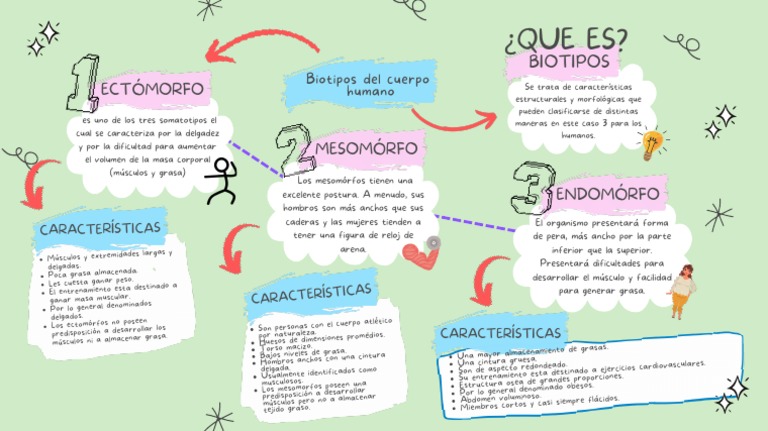 ¿QUE ES?
BIOTIPOS
Se trata de características
estructurales y morfológicas que
pueden clasificarse de distintas
maneras en este caso 3 para los
humanos.
Biotipos del cuerpo
humano
1
ECTÓMORFO
es uno de los tres somatotipos el
cual se caracteriza por la delgadez
y por la dificultad para aumentar
el volumen de la masa corporal
(músculos y grasa)
CARACTERÍSTICAS
Músculos y extremidades largas y
delgadas.
Poca grasa almacenada.
Les cuesta ganar peso.
El entrenamiento esta destinado a
ganar masa muscular.
Por lo general denominados
delgados.
Los ectomórfos no poseen
predisposición a desarrollar los
músculos ni a almacenar grasa
2
MESOMÓRFO
Los mesomórfos tienen una
excelente postura. A menudo, sus
hombros son más anchos que sus
caderas y las mujeres tienden a
tener una figura de reloj de
arena.
CARACTERÍSTICAS
Son personas con el cuerpo atlético
por naturaleza.
Huesos de dimensiones promedios.
Torso macizo.
Bajos niveles de grasa.
Hombros anchos con una cintura
delgada.
Usualmente identificados como
musculosos.
Los mesomorfos poseen una
predisposición a desarrollar
músculos pero no a almacenar
tejido graso.
3
ENDOMÓRFO
El organismo presentará forma
de pera, más ancho por la parte
inferior que la superior.
Presentará dificultades para
desarrollar el músculo y facilidad
para generar grasa.
CARACTERÍSTICAS
Una mayor almacenamiento de grasas.
Una cintura gruesa.
Son de aspecto redondeado.
Su entrenamiento esta destinado a ejercicios cardiovasculares.
Estructura osea de grandes proporciones.
Por lo general denominado obesos.
Abdomen voluminoso.
Miembros cortos y casi siempre flácidos.